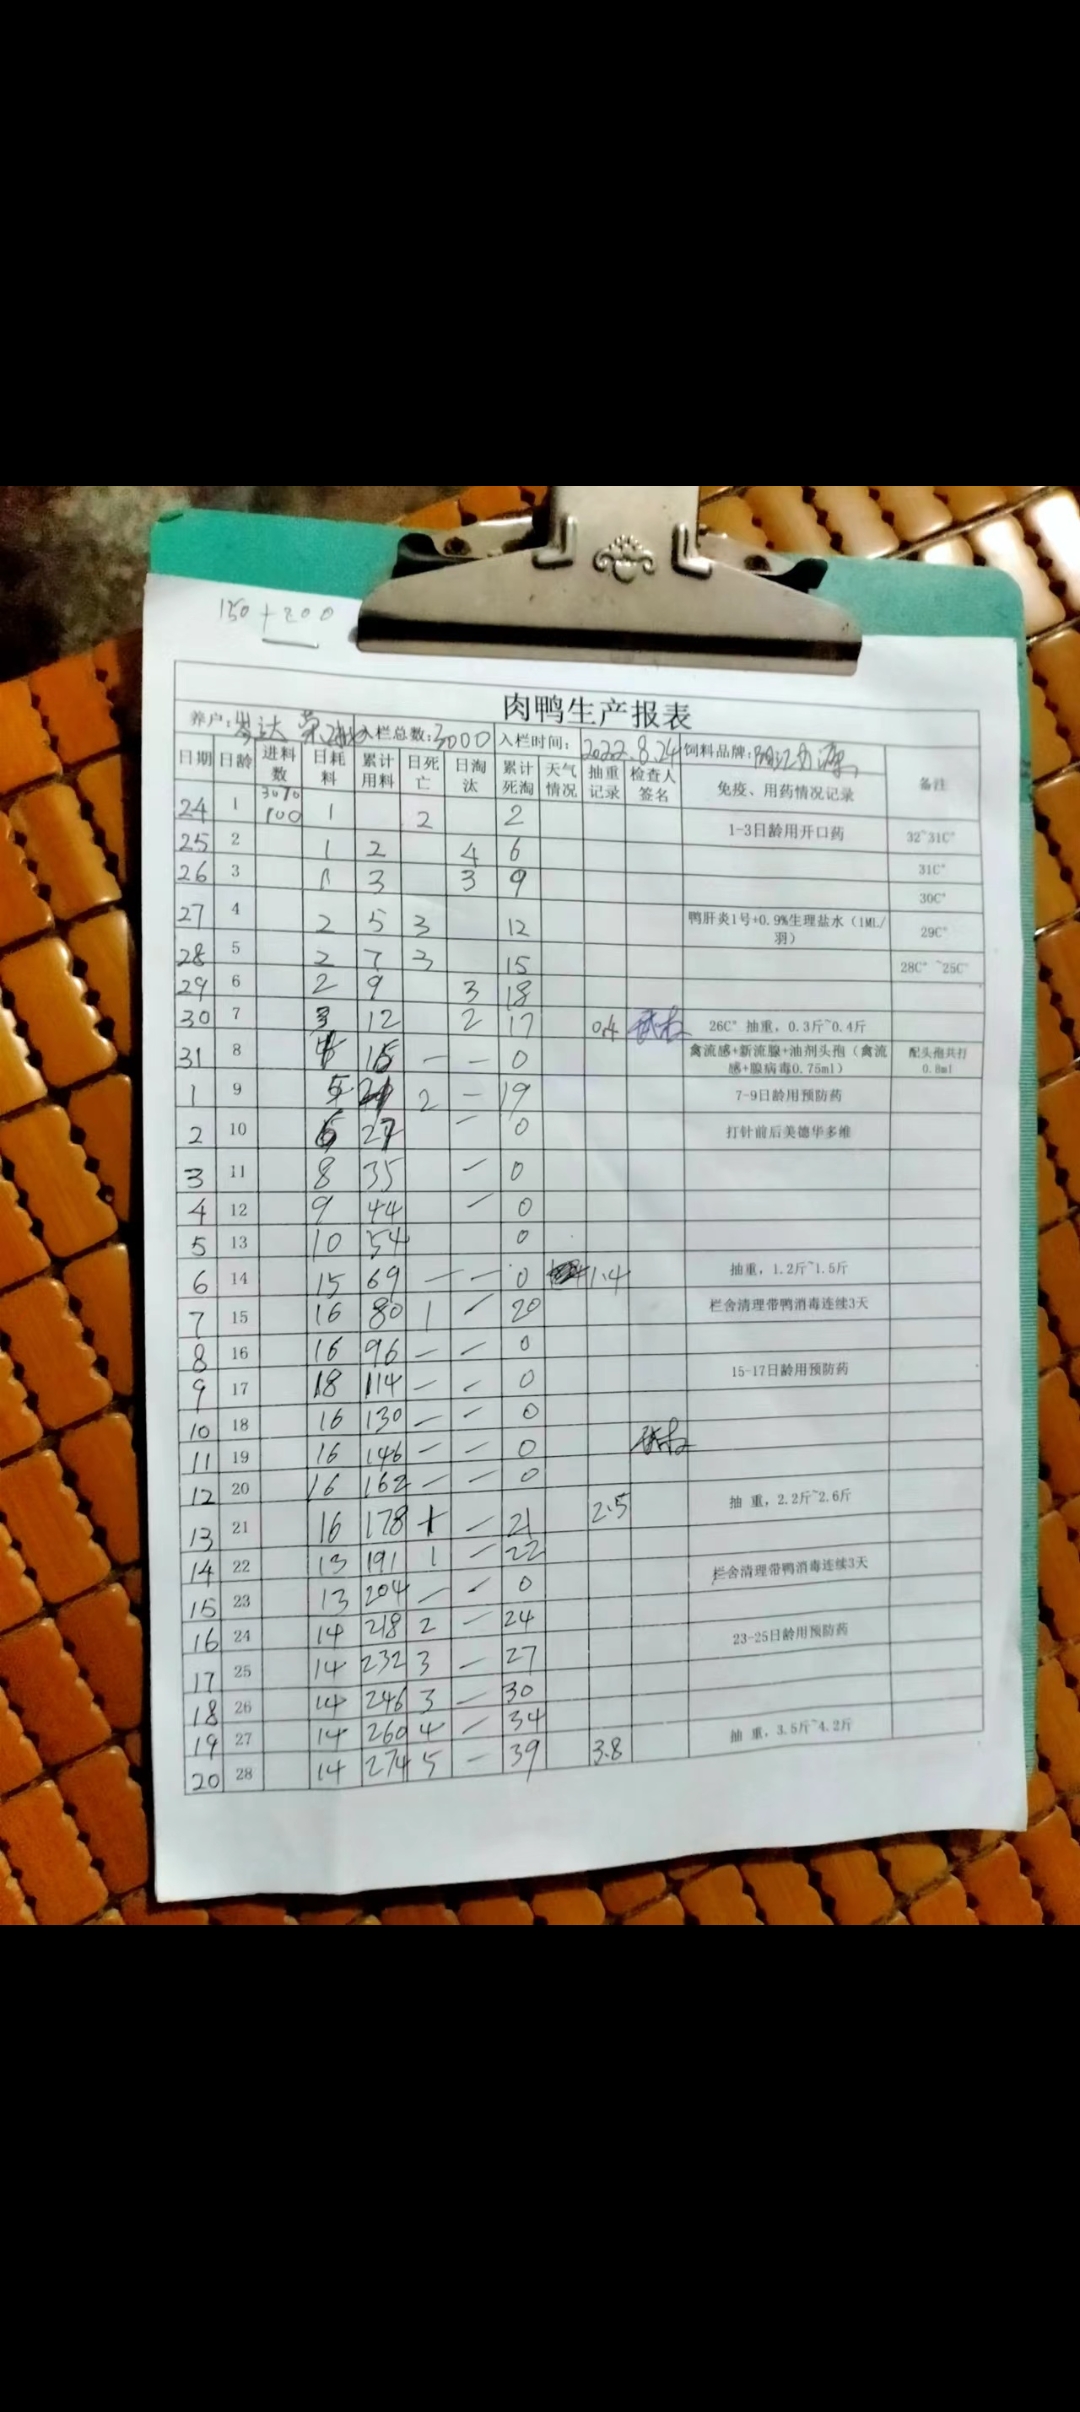 150+200
肉鸭生产报表
养户: 入栏总数:3000 入栏时间: 2022.8.24 饲料品牌:
日期 日龄 进料数 日耗料 累计用料 日死亡 日淘汰 累计死淘 天气情况 抽重记录 检查人签名 免疫、用药情况记录 备注
24 1 100 1 2 2
1-3日龄用开口药 32~31C°
25 2 1 2 4 6
31C°
26 3 1 3 3 9
30C°
27 4 2 5 3 12 鸭肝炎1号+0.9%生理盐水(1ML/羽) 29C°
28 5 2 7 3 15 28C°~25C°
29 6 2 9 3 18
30 7 3 12 2 17 0.4 26C° 抽重, 0.3斤~0.4斤
31 8 4 16 — — 0 禽流感+新流腺+油剂头孢(禽流感+腺病毒0.75ml) 配头孢共打0.8ml
1 9 5 21 2 — 19 7-9日龄用预防药
2 10 6 27 — 0 打针前后美德华多维
3 11 8 35 — 0
4 12 9 44 — 0
5 13 10 54 0
6 14 15 69 — — 0 1.4 抽重, 1.2斤~1.5斤
7 15 16 80 1 — 20 栏舍清理带鸭消毒连续3天
8 16 16 96 — — 0
9 17 18 114 — — 0 15-17日龄用预防药
10 18 16 130 — — 0
11 19 16 146 — — 0
12 20 16 162 — — 0
13 21 16 178 1 — 21 2.5 抽 重, 2.2斤~2.6斤
14 22 13 191 1 — 22
15 23 13 204 — — 0 栏舍清理带鸭消毒连续3天
16 24 14 218 2 — 24
17 25 14 232 3 — 27 23-25日龄用预防药
18 26 14 246 3 — 30
19 27 14 260 4 — 34
20 28 14 274 5 — 39 3.8 抽 重, 3.5斤~4.2斤